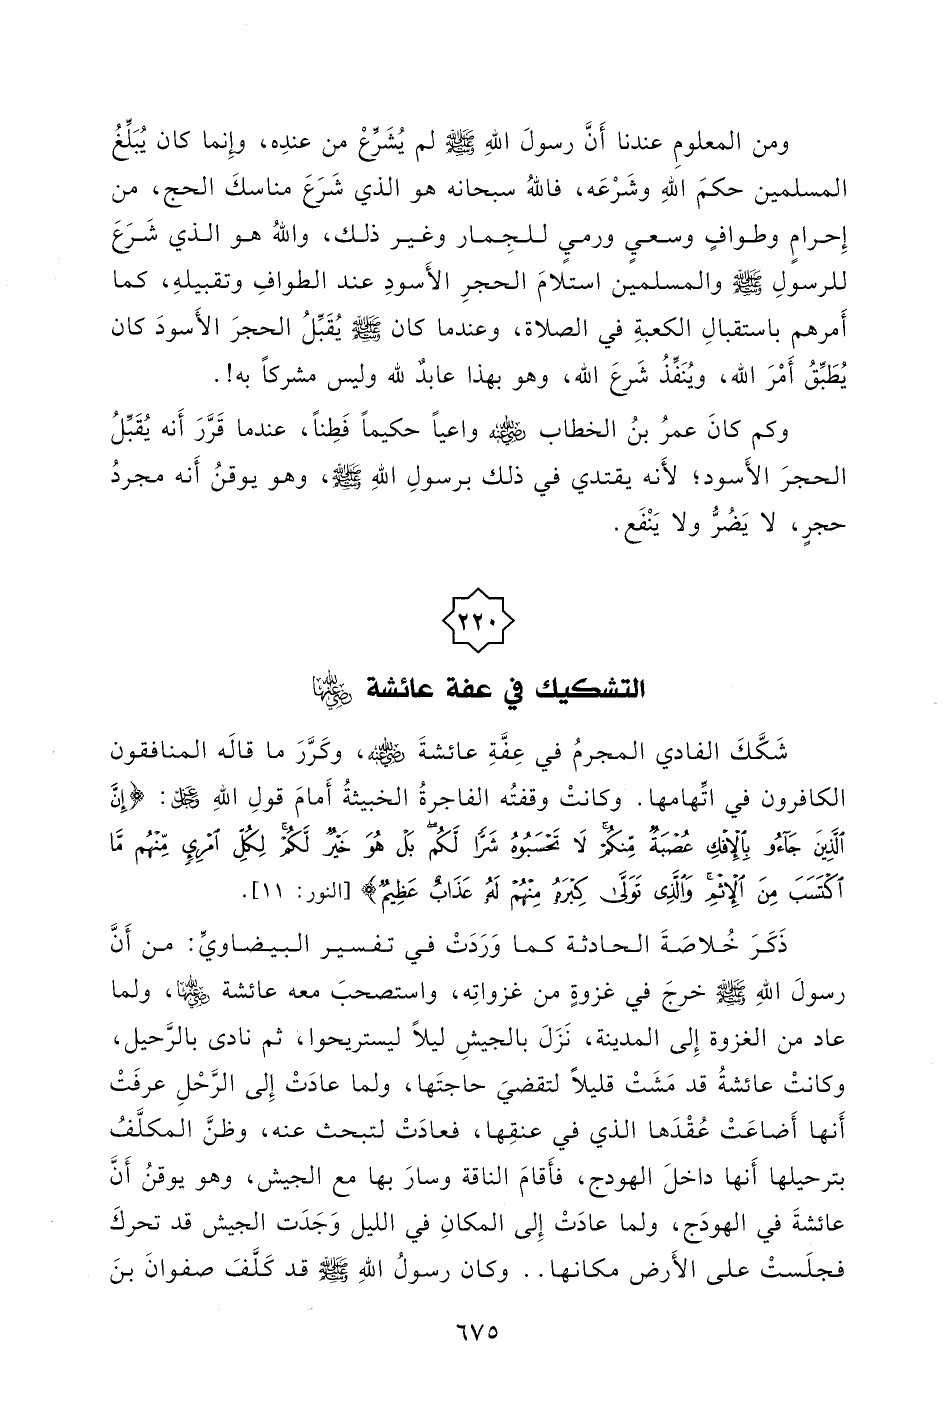 ومن المعلومِ عندنا أَنَّ رسولَ اللهِ ﷺ لم يُشَرِّعْ من عندِه، وإِنما كان يُبَلِّغُ
المسلمين حكمَ اللهِ وشَرْعَه، فاللهُ سبحانه هو الذي شَرَعَ مناسكَ الحج، من
إِحرامٍ وطوافٍ وسعيٍ ورميٍ للجمار وغير ذلك، واللهُ هو الذي شَرَعَ
للرسولِ ﷺ والمسلمين استلامَ الحجرِ الأَسودِ عند الطوافِ وتقبيلهِ، كما
أَمرهم باستقبالِ الكعبةِ في الصلاة، وعندما كان ﷺ يُقَبِّلُ الحجرَ الأَسودَ كان
يُطَبِّقُ أَمْرَ الله، ويُنَفِّذُ شَرعَ الله، وهو بهذا عابدٌ لله وليس مشركاً به!.
وكم كانَ عمرُ بنُ الخطاب رضي الله عنه واعياً حكيماً فَطِناً، عندما قَرَّرَ أَنه يُقَبِّلُ
الحجرَ الأَسود؛ لأَنه يقتدي في ذلك برسولِ اللهِ ﷺ، وهو يوقنُ أَنه مجردُ
حجرٍ، لا يَضُرُّ ولا يَنْفَع.
٢٢٠
التشكيك في عفة عائشة رضي الله عنها
شَكَّكَ الفادي المجرمُ في عِفَّةِ عائشةَ رضي الله عنه، وكَرَّرَ ما قالَه المنافقون
الكافرون في اتِّهامها. وكانتْ وقفتُه الفاجرةُ الخبيثةُ أَمامَ قولِ اللهِ ﷻ: ﴿إِنَّ
ٱلَّذِينَ جَآءُو بِٱلْإِفْكِ عُصْبَةٌ مِّنكُمْ ۚ لَا تَحْسَبُوهُ شَرًّا لَّكُم ۖ بَلْ هُوَ خَيْرٌ لَّكُمْ ۚ لِكُلِّ ٱمْرِئٍ مِّنْهُم مَّا
ٱكْتَسَبَ مِنَ ٱلْإِثْمِ ۚ وَٱلَّذِى تَوَلَّىٰ كِبْرَهُۥ مِنْهُمْ لَهُۥ عَذَابٌ عَظِيمٌ﴾ [النور: ١١].
ذَكَرَ خُلاصَةَ الحادثة كما وَرَدَتْ في تفسير البيضاويِّ: من أَنَّ
رسولَ اللهِ ﷺ خرجَ في غزوةٍ من غزواتِه، واستصحبَ معه عائشة رضي الله عنها، ولما
عاد من الغزوة إِلى المدينة، نَزَلَ بالجيشِ ليلاً ليستريحوا، ثم نادى بالرَّحيل،
وكانتْ عائشةُ قد مَشَتْ قليلاً لتقضيَ حاجتَها، ولما عادَتْ إِلى الرَّحْلِ عرفَتْ
أَنها أَضاعَتْ عُقْدَها الذي في عنقِها، فعادَتْ لتبحث عنه، وظنَّ المكلَّفُ
بترحيلها أَنها داخلَ الهودج، فأَقامَ الناقة وسارَ بها مع الجيش، وهو يوقنُ أَنَّ
عائشةَ في الهودَج، ولما عادَتْ إِلى المكانِ في الليل وَجَدَت الجيش قد تحركَ
فجلَستْ على الأَرض مكانها.. وكان رسولُ اللهِ ﷺ قد كَلَّفَ صفوانَ بنَ
٦٧٥